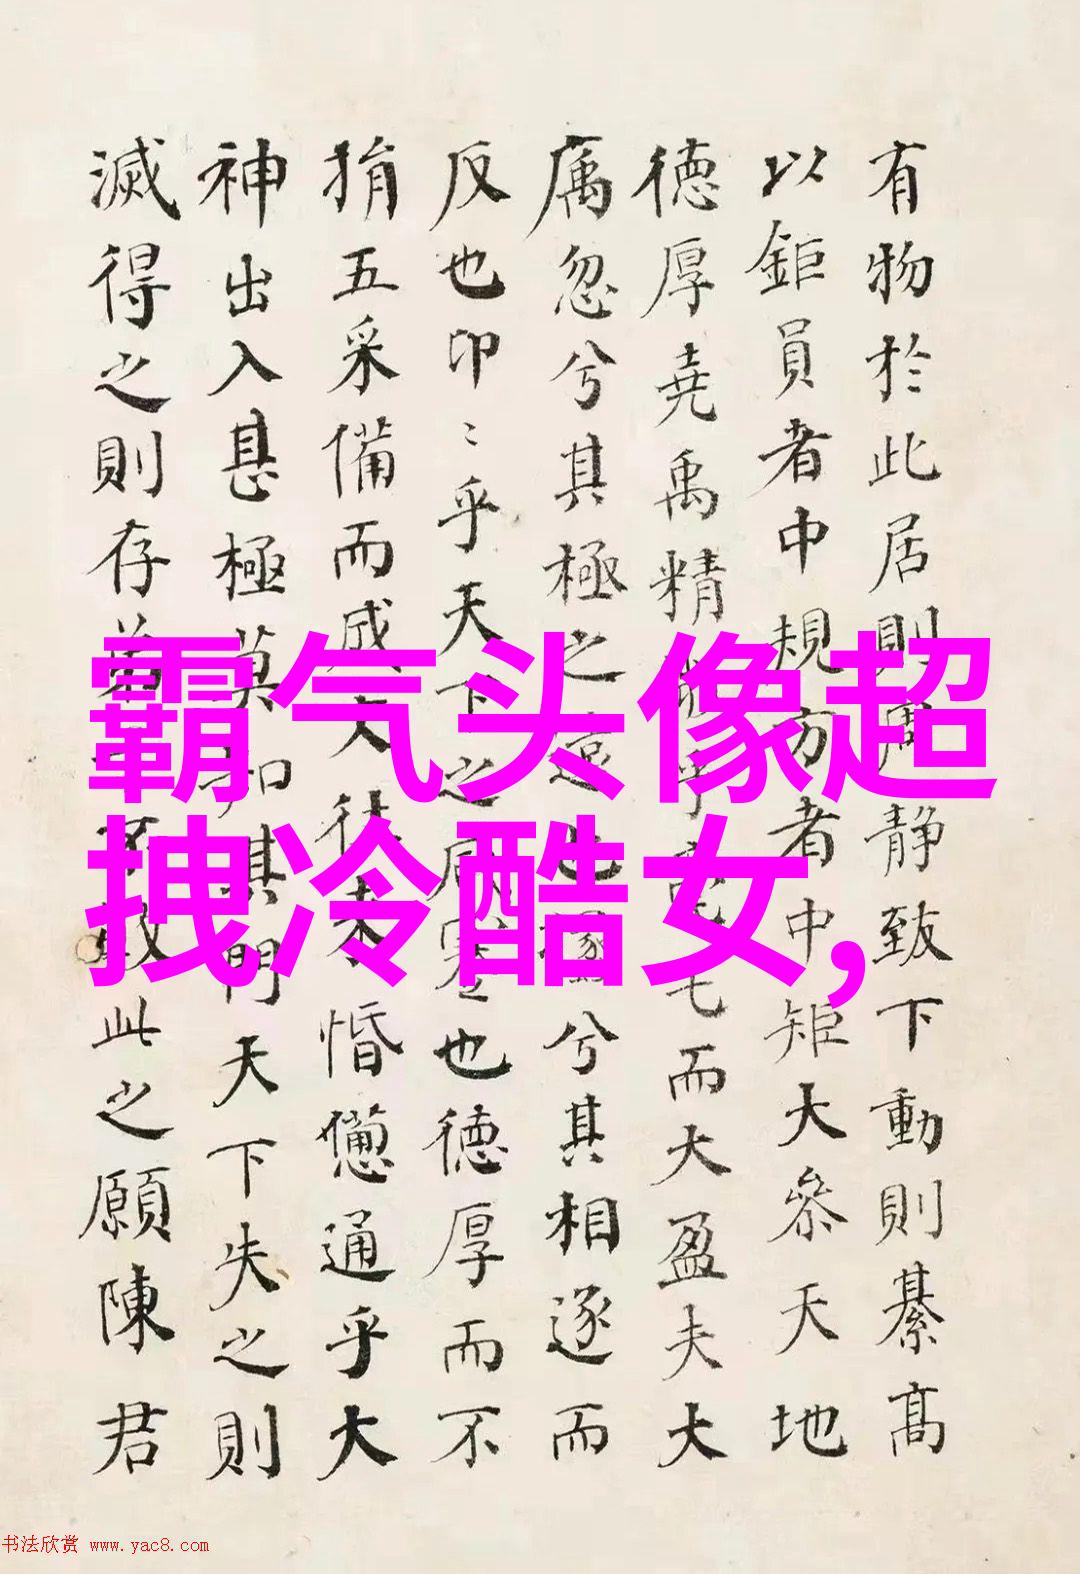 有物於此居則周靜致下動則綦高
以鉅員者中規方者中矩大參天地
德厚堯禹精乎毫毛而大盈夫大
庽忽兮其極之遠也兮其相逐而
反也卬〻乎天下之咸蹇也德厚而不
捐五采備而成文往來惛憊通乎大
神出入甚極莫知其門天下失之則
滅得之則存弟不敏此之願陳君
霸气头像超
拽冷酷女,
书法欣赏 www.yac8.com